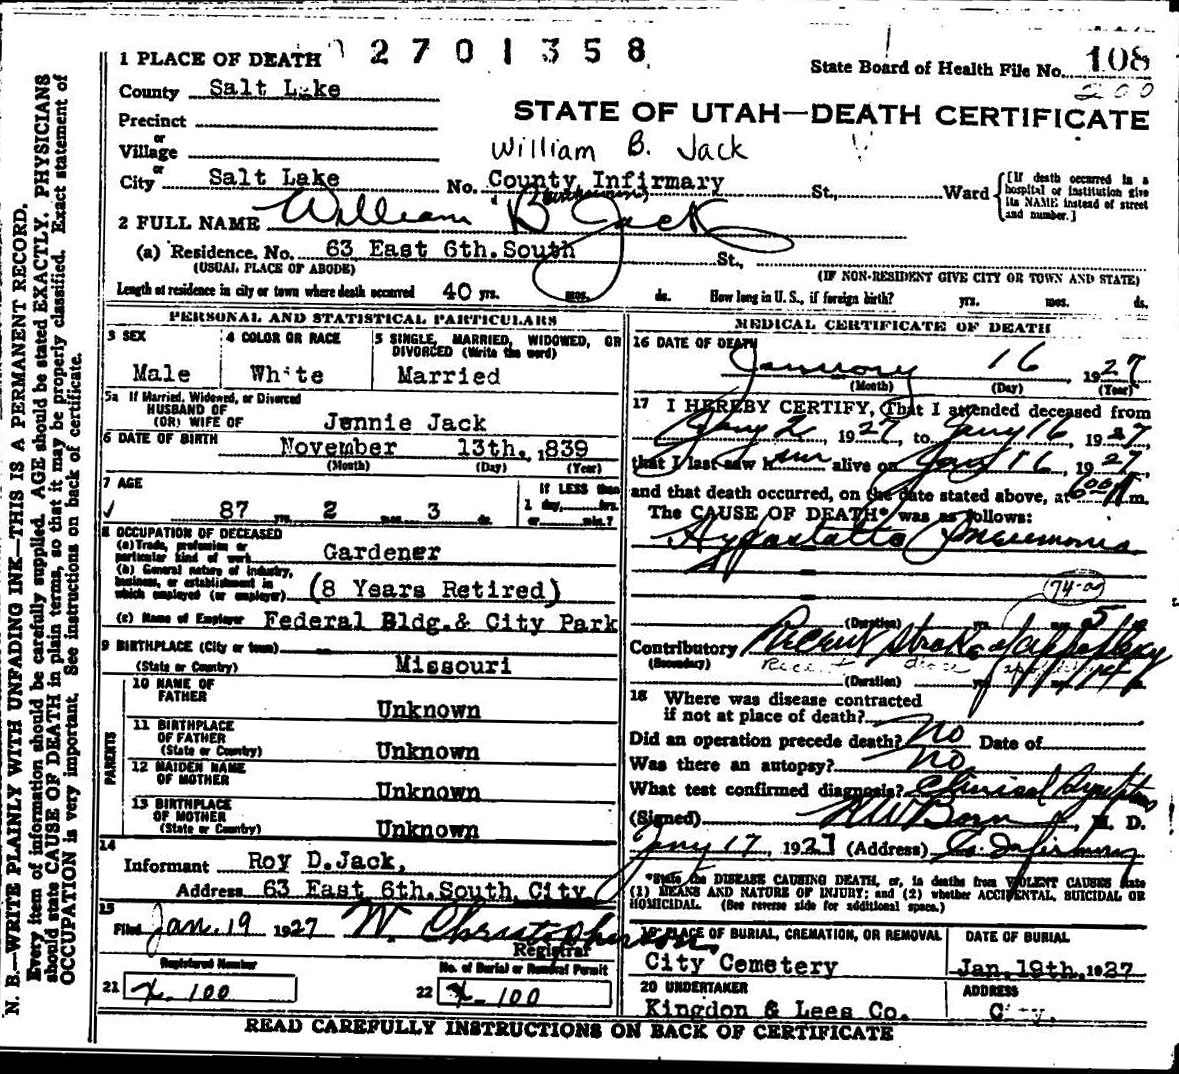 N. B.—WRITE PLAINLY WITH UNFADING INK—THIS IS A PERMANENT RECORD.
Every item of information should be carefully supplied. AGE should be stated EXACTLY. PHYSICIANS
should state CAUSE OF DEATH in plain terms, so that it may be properly classified. Exact statement of
OCCUPATION is very important. See instructions on back of certificate.
2701358
State Board of Health File No. 108
200
1 PLACE OF DEATH
County Salt Lake
STATE OF UTAH—DEATH CERTIFICATE
Precinct
or
Village
William B. Jack
or
City Salt Lake No. County Infirmary St., Ward
[If death occurred in a hospital or institution give its NAME instead of street and number.]
2 FULL NAME William B Jack
(a) Residence. No. 63 East 6th.South St.,
(USUAL PLACE OF ABODE) (IF NON-RESIDENT GIVE CITY OR TOWN AND STATE)
Length of residence in city or town where death occurred 40 yrs. mos. ds. How long in U. S., if foreign birth? yrs. mos. ds.
PERSONAL AND STATISTICAL PARTICULARS
3 SEX
Male
4 COLOR OR RACE
White
5 SINGLE, MARRIED, WIDOWED, OR DIVORCED (Write the word)
Married
5a If Married, Widowed, or Divorced
HUSBAND OF
(OR) WIFE OF Jennie Jack
6 DATE OF BIRTH November 13th. 1839
(Month) (Day) (Year)
7 AGE
87 yrs. 2 mos. 3 ds.
If LESS than
1 day, hrs.
or min.?
8 OCCUPATION OF DECEASED
(a) Trade, profession or
particular kind of work Gardener
(b) General nature of industry,
business, or establishment in
which employed (or employer) (8 Years Retired)
(c) Name of Employer Federal Bldg.& City Park
9 BIRTHPLACE (City or town)
(State or Country) Missouri
PARENTS
10 NAME OF
FATHER Unknown
11 BIRTHPLACE
OF FATHER
(State or Country) Unknown
12 MAIDEN NAME
OF MOTHER Unknown
13 BIRTHPLACE
OF MOTHER
(State or Country) Unknown
14
Informant Roy D.Jack,
Address 63 East 6th.South, City
15
Filed Jan. 19 1927 W. Christopherson
Registrar
Registered Number
21 X-100
No. of Burial or Removal Permit
22 X-100
MEDICAL CERTIFICATE OF DEATH
16 DATE OF DEATH
January 16 1927
(Month) (Day) (Year)
17 I HEREBY CERTIFY, That I attended deceased from
Jany 2, 1927, to Jany 16, 1927,
that I last saw him alive on Jany 16, 1927,
and that death occurred, on the date stated above, at 6 00 m.
The CAUSE OF DEATH* was as follows:
Hypostatic Pneumonia
74-a
(Duration) yrs. mos. 5 ds.
Contributory Recent stroke of apoplexy
(Secondary)
(Duration) yrs. mos. 14 ds.
18 Where was disease contracted
if not at place of death?
Did an operation precede death? No Date of
Was there an autopsy? No
What test confirmed diagnosis? Clinical Symptoms
(Signed) M. D.
Jany 17, 1927 (Address) Co. Infirmary
*State the DISEASE CAUSING DEATH, or, in deaths from VIOLENT CAUSES state
(1) MEANS AND NATURE OF INJURY; and (2) whether ACCIDENTAL, SUICIDAL OR
HOMICIDAL. (See reverse side for additional space.)
19 PLACE OF BURIAL, CREMATION, OR REMOVAL
City Cemetery
DATE OF BURIAL
Jan. 19th. 1927
20 UNDERTAKER
Kingdon & Lees Co.
ADDRESS
City.
READ CAREFULLY INSTRUCTIONS ON BACK OF CERTIFICATE